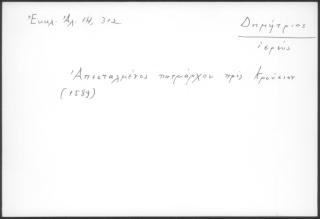 Ἐκκλ. Ἀλ. 14, 312
Δημήτριος
ἱερεύς
Ἀπεσταλμένος πατριάρχου πρὸς Κρούσιον
(1589)